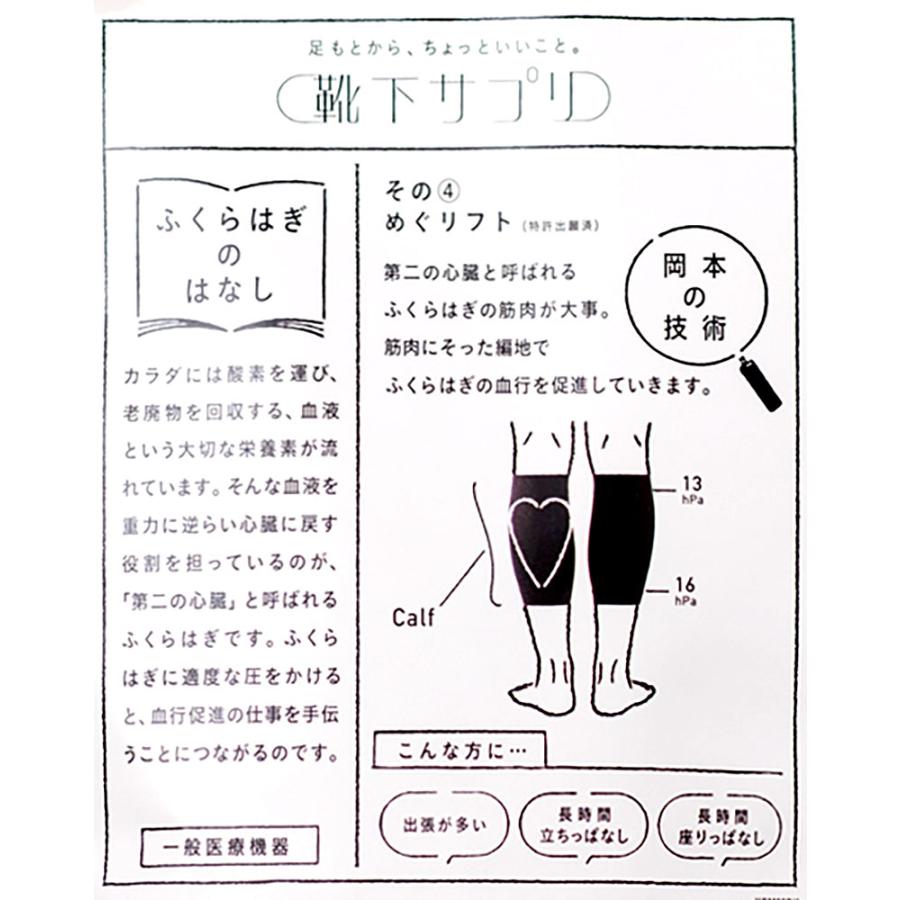 足もとから、ちょっといいこと。
靴下サプリ
ふくらはぎ
の
はなし
カラダには酸素を運び、
老廃物を回収する、血液
という大切な栄養素が流
れています。そんな血液を
重力に逆らい心臓に戻す
役割を担っているのが、
「第二の心臓」と呼ばれる
ふくらはぎです。ふくら
はぎに適度な圧をかける
と、血行促進の仕事を手伝
うことにつながるのです。
一般医療機器
その④
めぐリフト（特許出願済）
第二の心臓と呼ばれる
ふくらはぎの筋肉が大事。
筋肉にそった編地で
ふくらはぎの血行を促進していきます。
岡本
の
技術
13
hPa
16
hPa
Calf
こんな方に…
出張が多い
長時間
立ちっぱなし
長時間
座りっぱなし